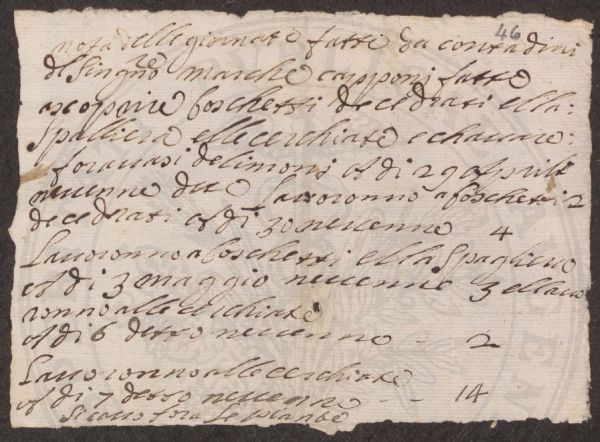 46
nota delle giornate fatte da contadini
del Singre Marche capponi fatte
a scoprire boschetti de cedrati ella:
Spalliera elle cerchiate e chauare:
fora uasi de limoni A di 29 aprile
neuenne due Lauoronno a boschetti 2
de cedrati A di 30 neuenne 4
Lauoronno a boschetti ella Spagliera
A di 3 maggio neuenne 3 ellauo
ronno alle cerchiate
A di 6 detto neuenne - 2
Lauoronno alle cerchiate
A di 7 detto neuenne - - 14
Si cauo fora le piante